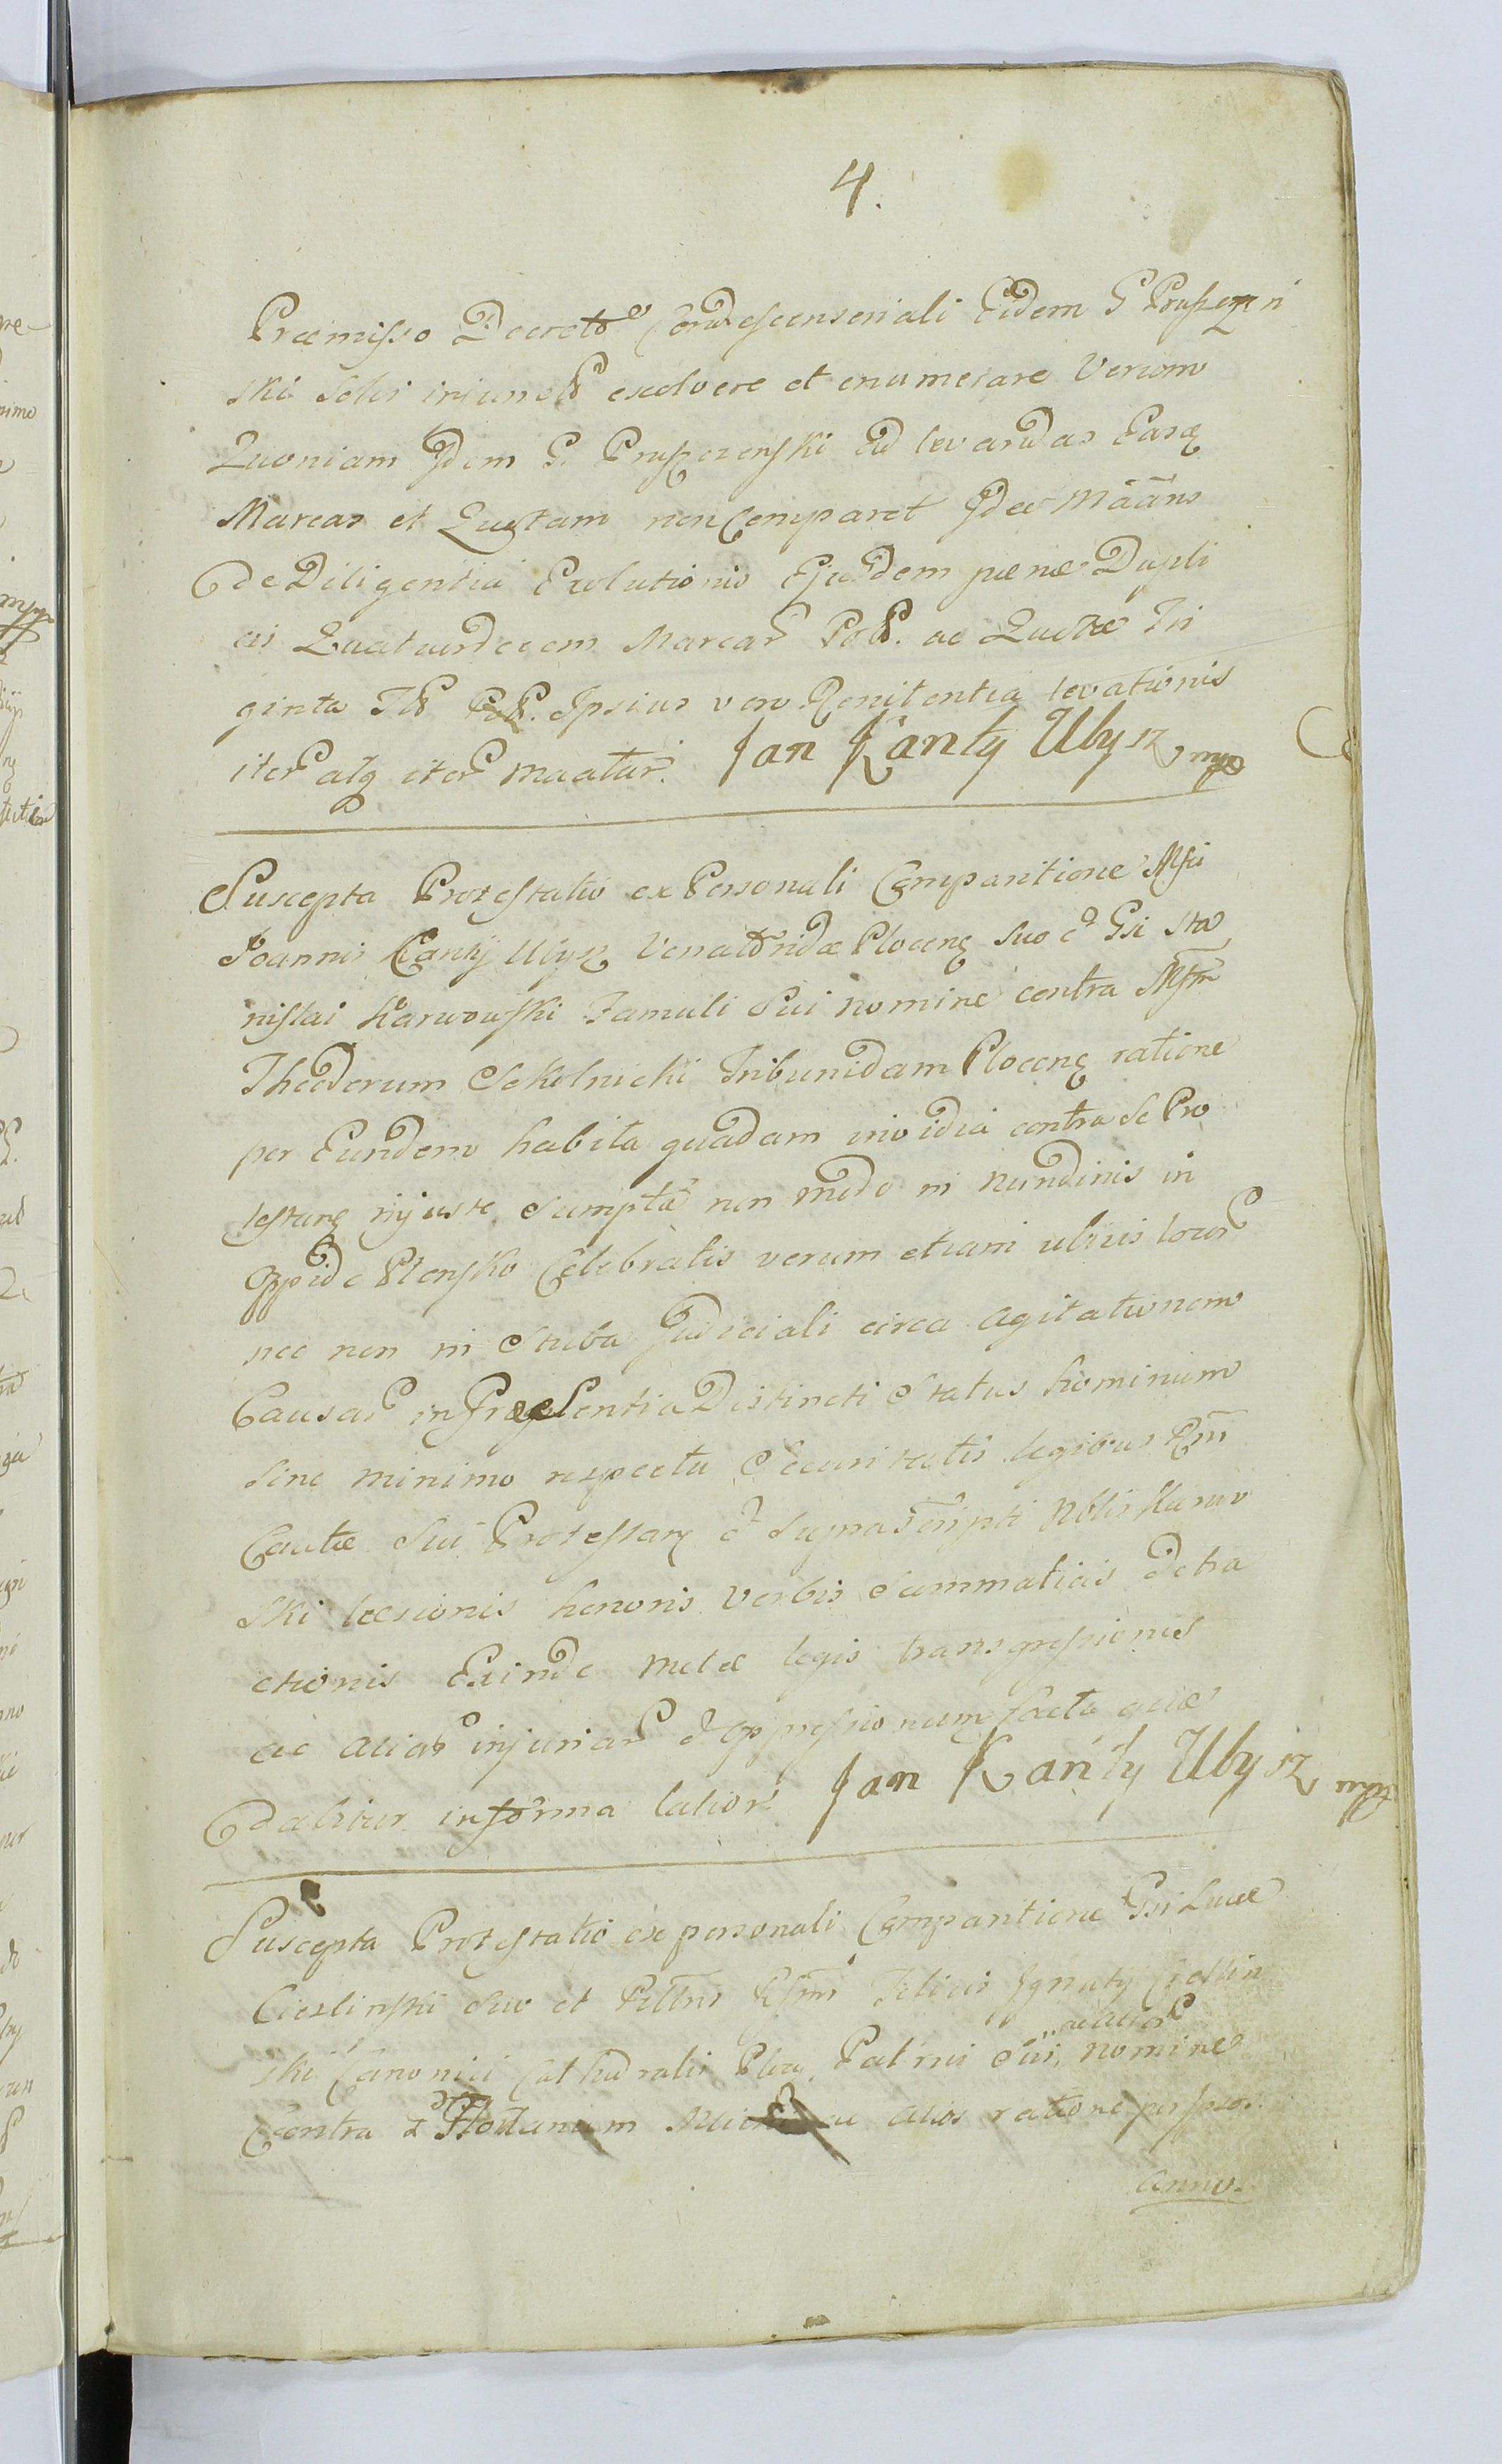 4.
Præmisso Decreto Condescensoriali Eidem G Pruszczyń
ski Solvi iniunct exolvere et enumerare Verum
Quoniam Idem G. Pruszczenski ad levandas Easq
Marcas et Quotam non Comparet Ideo Mããns
de Diligentia Exolutionis Ejusdem pœnæ Dupli
cis Quatuordecem Marcar Pol. ac Quotæ Tri
ginta Fl Pol. Ipsius vero Renitentia levationis
iter atq iter maatur. Jan Kanty Ulysz mp
Suscepta Protestatio ex Personali Comparitione Mfci
Joannis Cantij Ulysz Venatoridæ Plocen suo et Gsi Sta
nislai Karwowski Famuli Sui nomine contra Mfm
Theodorum Sokolnicki Tribunidam Plocen ratione
per Eundem habita quadam invidia contra se Pro
testan injuste Sumpta non modo in nundinis in
Oppido Plonsko Celebratis verum etiam ubivis locor
nec non in Stuba Judiciali circa agitationem
Causar in Præsentia Distincti Status hominum
Sine minimo respectu Securitatis legibus Rgni
Cautæ Sui Protestan et Suprascripti Nblis Karwo
Ski læsionis honoris Verbis Summaticis detra
ctionis Exinde metæ legis transgressionis
ac aliar injuriar et oppressionum facta quæ
dabitur in forma latiori Jan Kanty Ulysz mp
Suscepta Protestatio ex personali Comparitione Gsi Lucæ
Cieslinski Suo et Rssmi Felicis Ignatij Cieslin
ski Canonici Cathedralis Ploc, Patrui Sui, ac alior nomine
Contra ac alios ratione per Ipsos
anno.